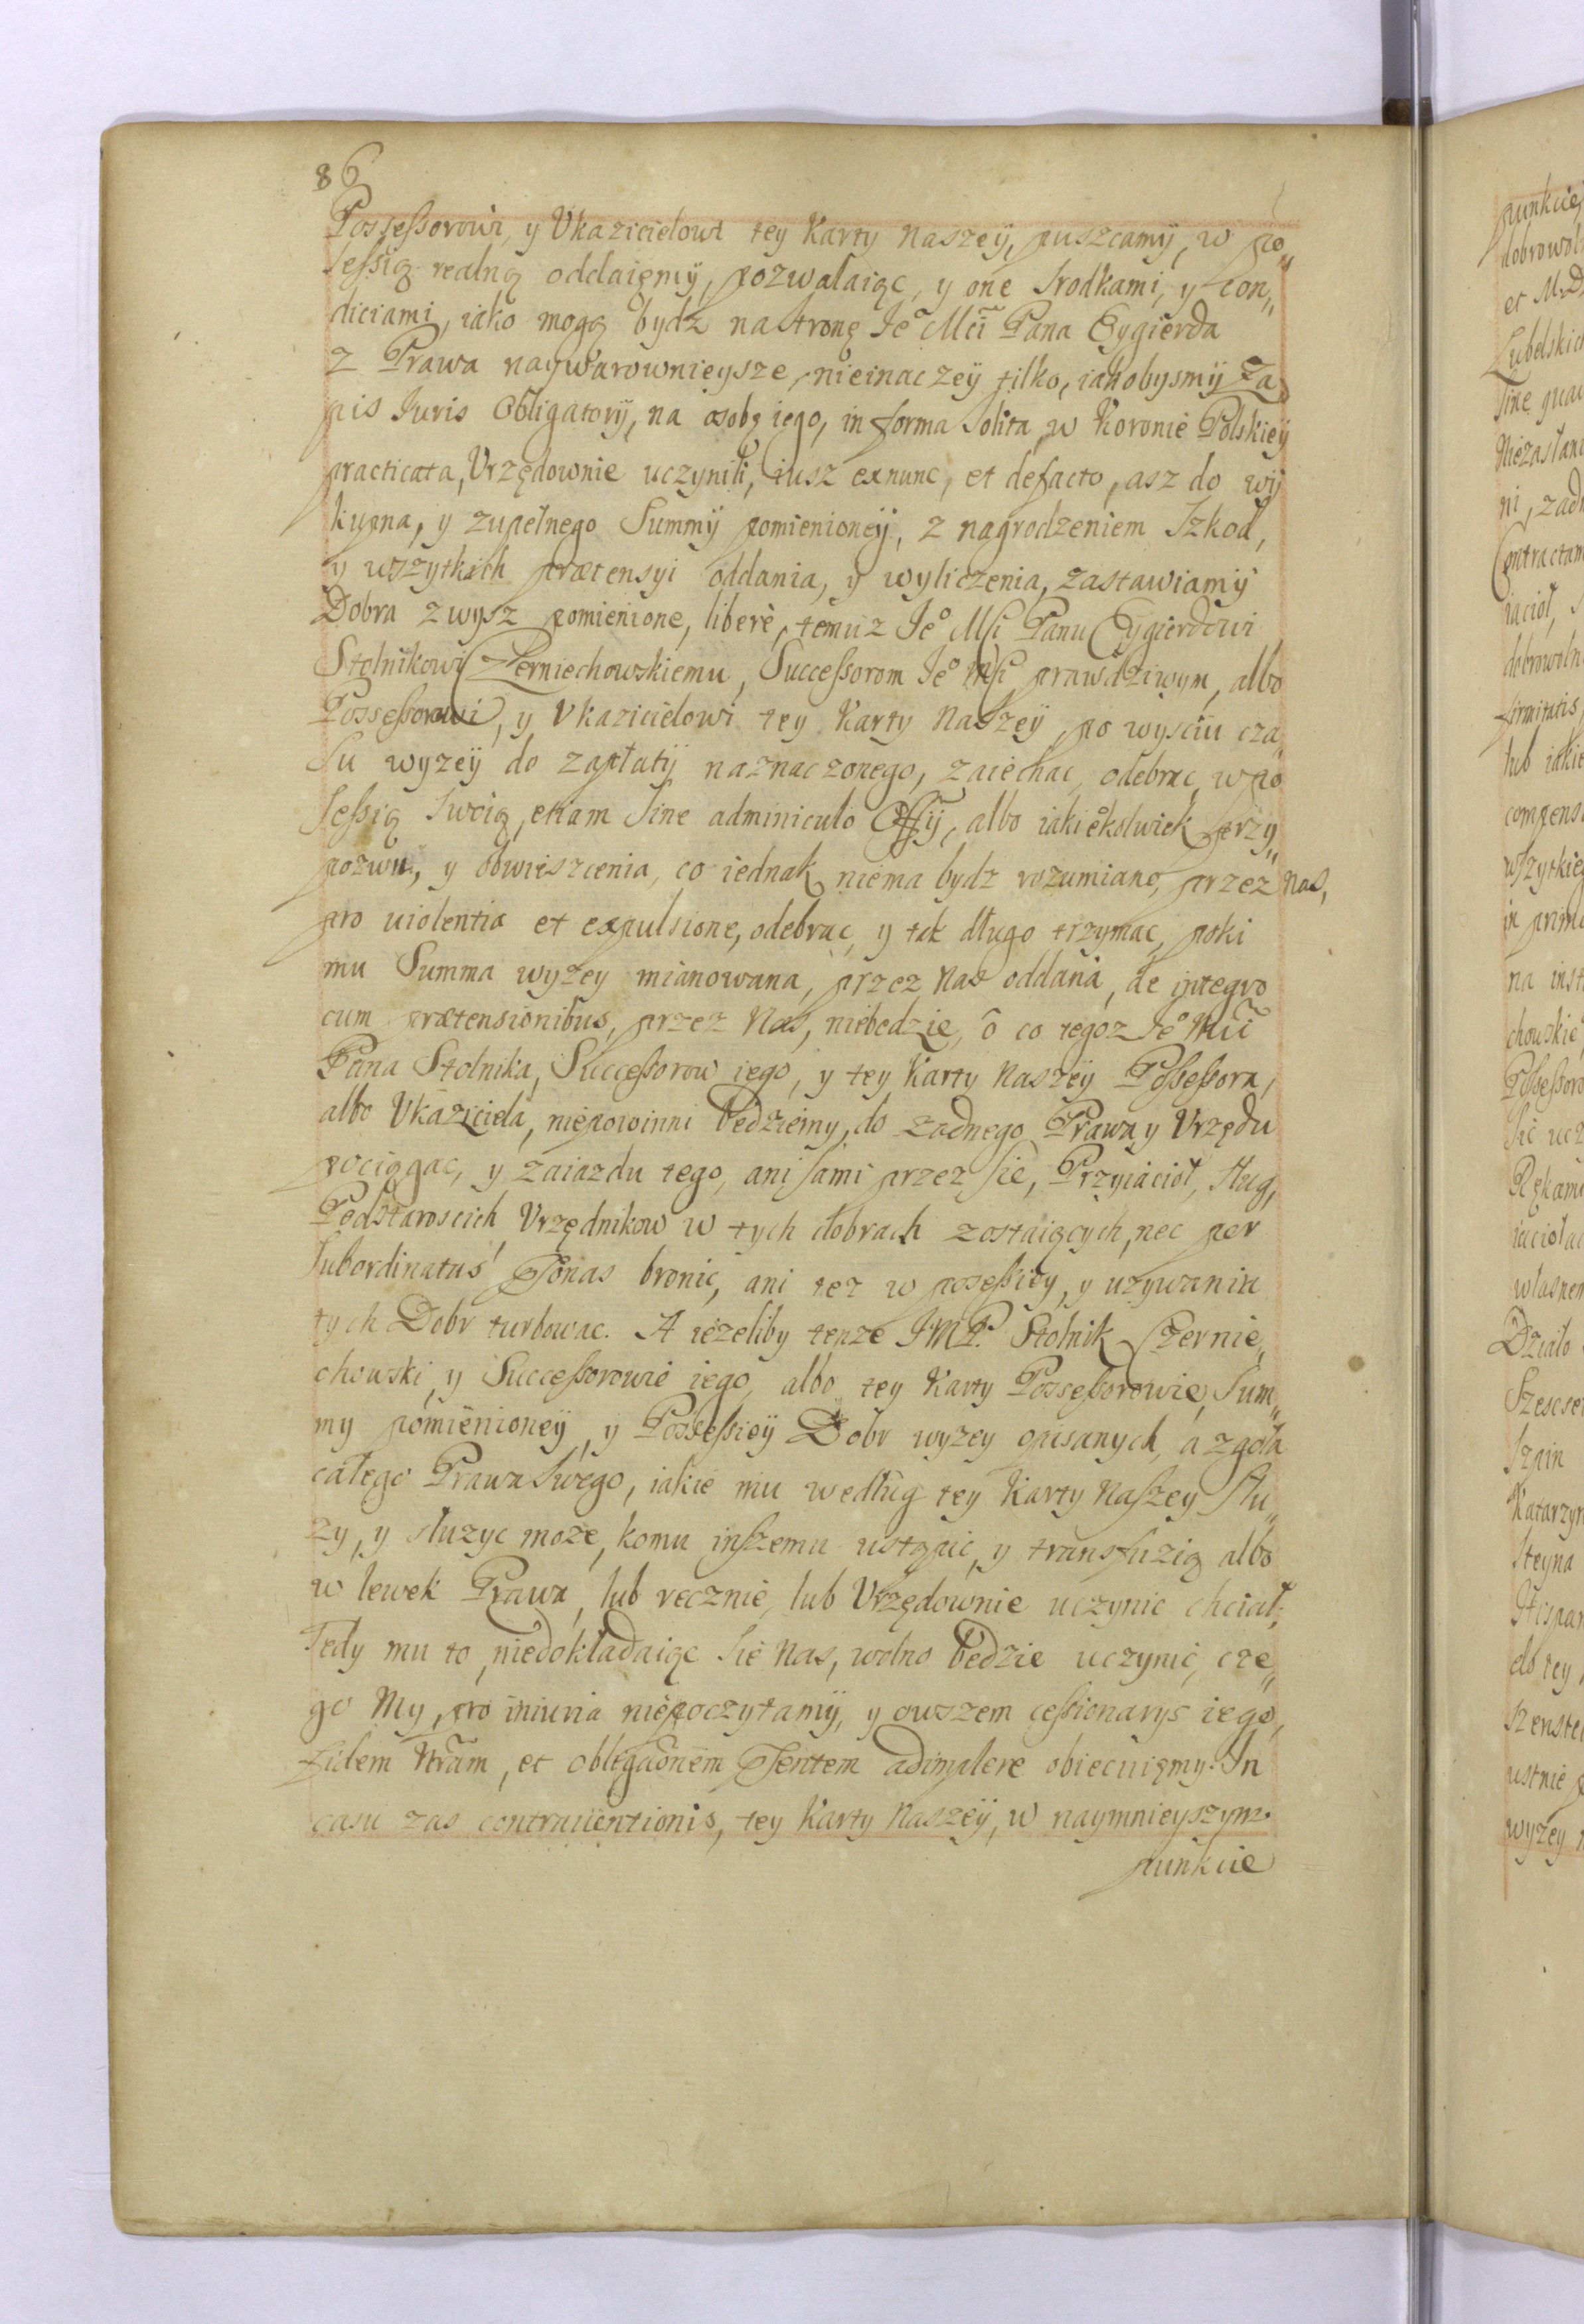 86
Possessorowi, y Ukazicielowi tey Karty Naszeÿ, puszcamÿ, w po„
sessią realną oddaięmÿ, pozwalaiąc, y one srodkami, y con„
diciami, iako mogą bydz na stronę Ieº Mci Pana Cygierda
z Prawa naywarownieysze, nieinaczeÿ tilko, iakobysmÿ Za„
pis Iuris Obligatorÿ, na osobę iego, in forma solita, w Koronie Polskieÿ
practicata, Vrzędownie uczynili, iusz exnunc, et defacto, asz do wÿ
kupna, y zupełnego Summÿ pomienioneÿ, z nagrodzeniem Szkod,
y wszytkich prætensyi oddania, y wyliczenia, zastawiamÿ
Dobra zwysz pomienione, liberè, temuz Ieº Mści Panu Cygierdowi
Stolnikowi Czerniechowskiemu, Successorom Ieº Mści prawdziwym, albo
Possessorowi, y Vkazicielowi tey Karty Naszeÿ, po wysciu cza„
su wyzeÿ do zapłatÿ naznaczonego, zaiechac, odebrac, w po
sessią swoię, etiam sine adminiculo Offÿ, albo iakiekolwiek przy„
pozwu, y obwieszcenia, co iednak niema bydz rozumiano, przez Nas,
pro uiolentia et expulsione, odebrac, y tak długo trzymac, poki
mu Summa wyzey mianowana, przez Nas oddana, de integro
cum prætensionibus, przez Nas, niebedzie, o co tegoz Ieº Mci
Pana Stolnika, Successorow iego, y tey Karty Naszeÿ Possessora,
albo Vkaziciela, niepowinni bedziemy, do zadnego Prawa, y Vrzędu
pociągac, y zaiazdu tego, ani sami przez sie, Przyiacioł, sług,
Podstaroscich, Vrzędnikow w tych dobrach zostaiących, nec per
Subordinatas Psonas bronic, ani tez w possessiey, y uzywaniu
tych Dobr turbowac. A iezeliby tenze IMP. Stolnik Czernie„
chowski, y Successorowie iego, albo tey Karty Possessorowie, Sum„
my pomienioneÿ, y Possessieÿ Dobr wyzey opisanych, a zgoła
całego Prawa swego, iakie mu według tey Karty Naszey słu„
zy, y słuzyc moze, komu inszemu ustąpic, y transfuzią albo
wlewek Prawa, lub recznie, lub Vrzędownie uczynic chciał;
Tedy mu to, niedokładaiąc sie Nas, wolno bedzie uczynic, cze„
go My, pro iniuria niepoczytamÿ, y owszem cessionarys iego,
fidem Nram, et obligaonem Psentem adimplere obiecuięmy. In
casu zas contrauentionis, tey Karty Naszeÿ, w naymnieyszym
punkcie